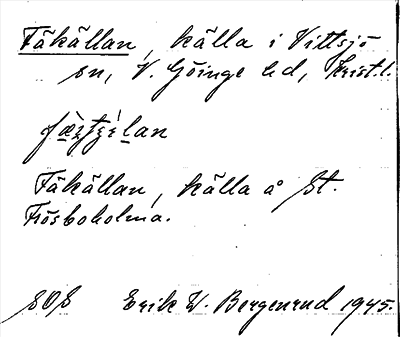 Fäkällan, källa i Vittsjö
sn, V. Göinge hd, Krist.l.
Fäkällan, källa å St.
Frösboholma.
SOS Erik W. Bergenrud 1945.